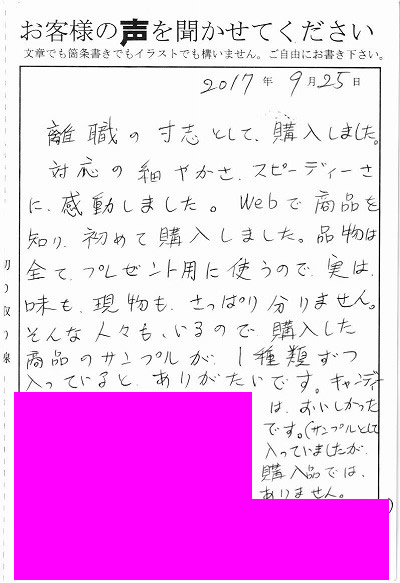 お客様の声を聞かせてください
文章でも箇条書きでもイラストでも構いません。ご自由にお書き下さい。
2017年 9月25日
離職の寸志として、購入しました。
対応の細やかさ、スピーディーさ
に、感動しました。Webで商品を
知り、初めて購入しました。品物は
全て、プレゼント用に使うので、実は、
味も、現物も、さっぱり分りません。
そんな人々も、いるので、購入した
商品のサンプルが、1種類ずつ
入っていると、ありがたいです。キャンディ
は、おいしかった
です。(サンプルとして
入っていましたが、
購入品では、
ありません。
)
切り取り線